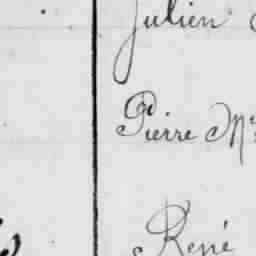 Julien
Pierre M
René